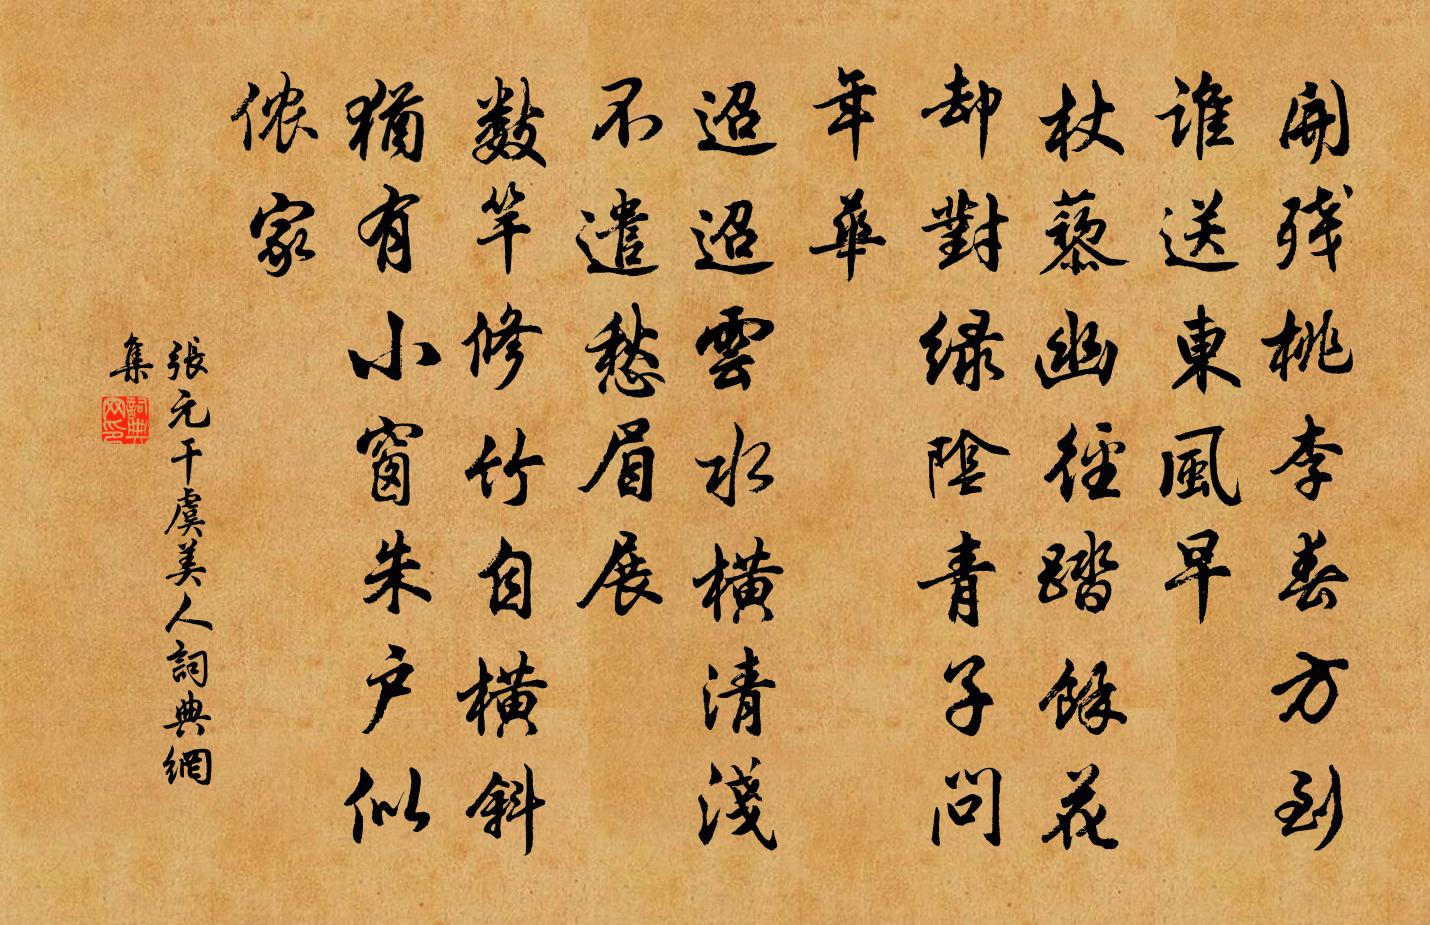 開殘桃李春方到
誰送東風早
杖藜幽徑踏餘花
却對綠陰青子問
年華
迢迢雲水橫清淺
不遣愁眉展
數竿修竹自橫斜
猶有小窗朱户似
儂家
張元干虞美人詞典網
集
詞典網印